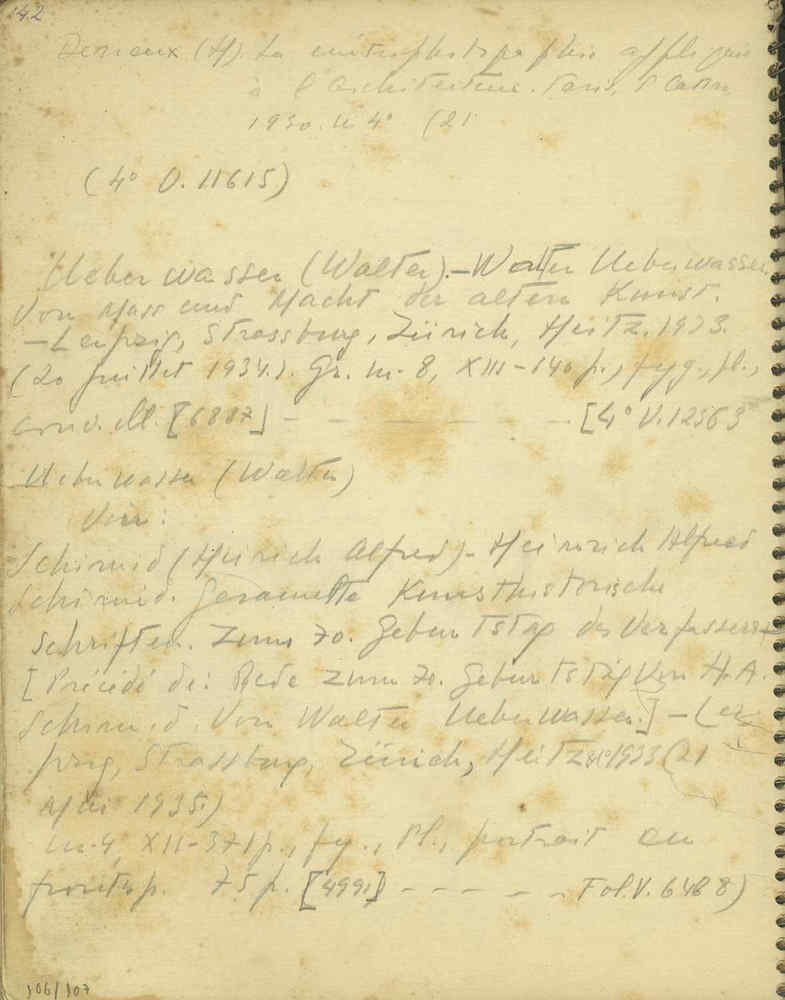 42
Deneux (H). La métrophotographie appliquée
à l'architecture. Paris, P. Catin
1930. in 4° (21
(4° O. 11615)
Ueberwasser (Walter).—Walter Ueberwasser,
Von Mass und Macht der alten Kunst.
—Leipzig, Strassburg, Zürich, Heitz. 1933.
(20 juillet 1934.). Gr. in-8, XIII-140 p., fig., pl.,
couv. ill. [6887] - - - - - [4° V. 12563
Ueberwasser (Walter)
Voir:
Schimid (Heinrich Alfred)- Heinrich Alfred
Schmid. Gesammelte Kunsthistorische
Schriften. Zum 70. Geburtstag des Verfassers-
[Précédé de: Rede zum 70. Geburtstag von H. A.
Schmid. Von Walter Ueberwasser.] - Lei
pzig, Strassburg, Zürich, Heitz 1933 (21
1935.)
in-4 XII-371 p., fig., Pl., portrait en
frontisp. 75 p. [4991] - - - - - Fol. V. 6468)
106/107